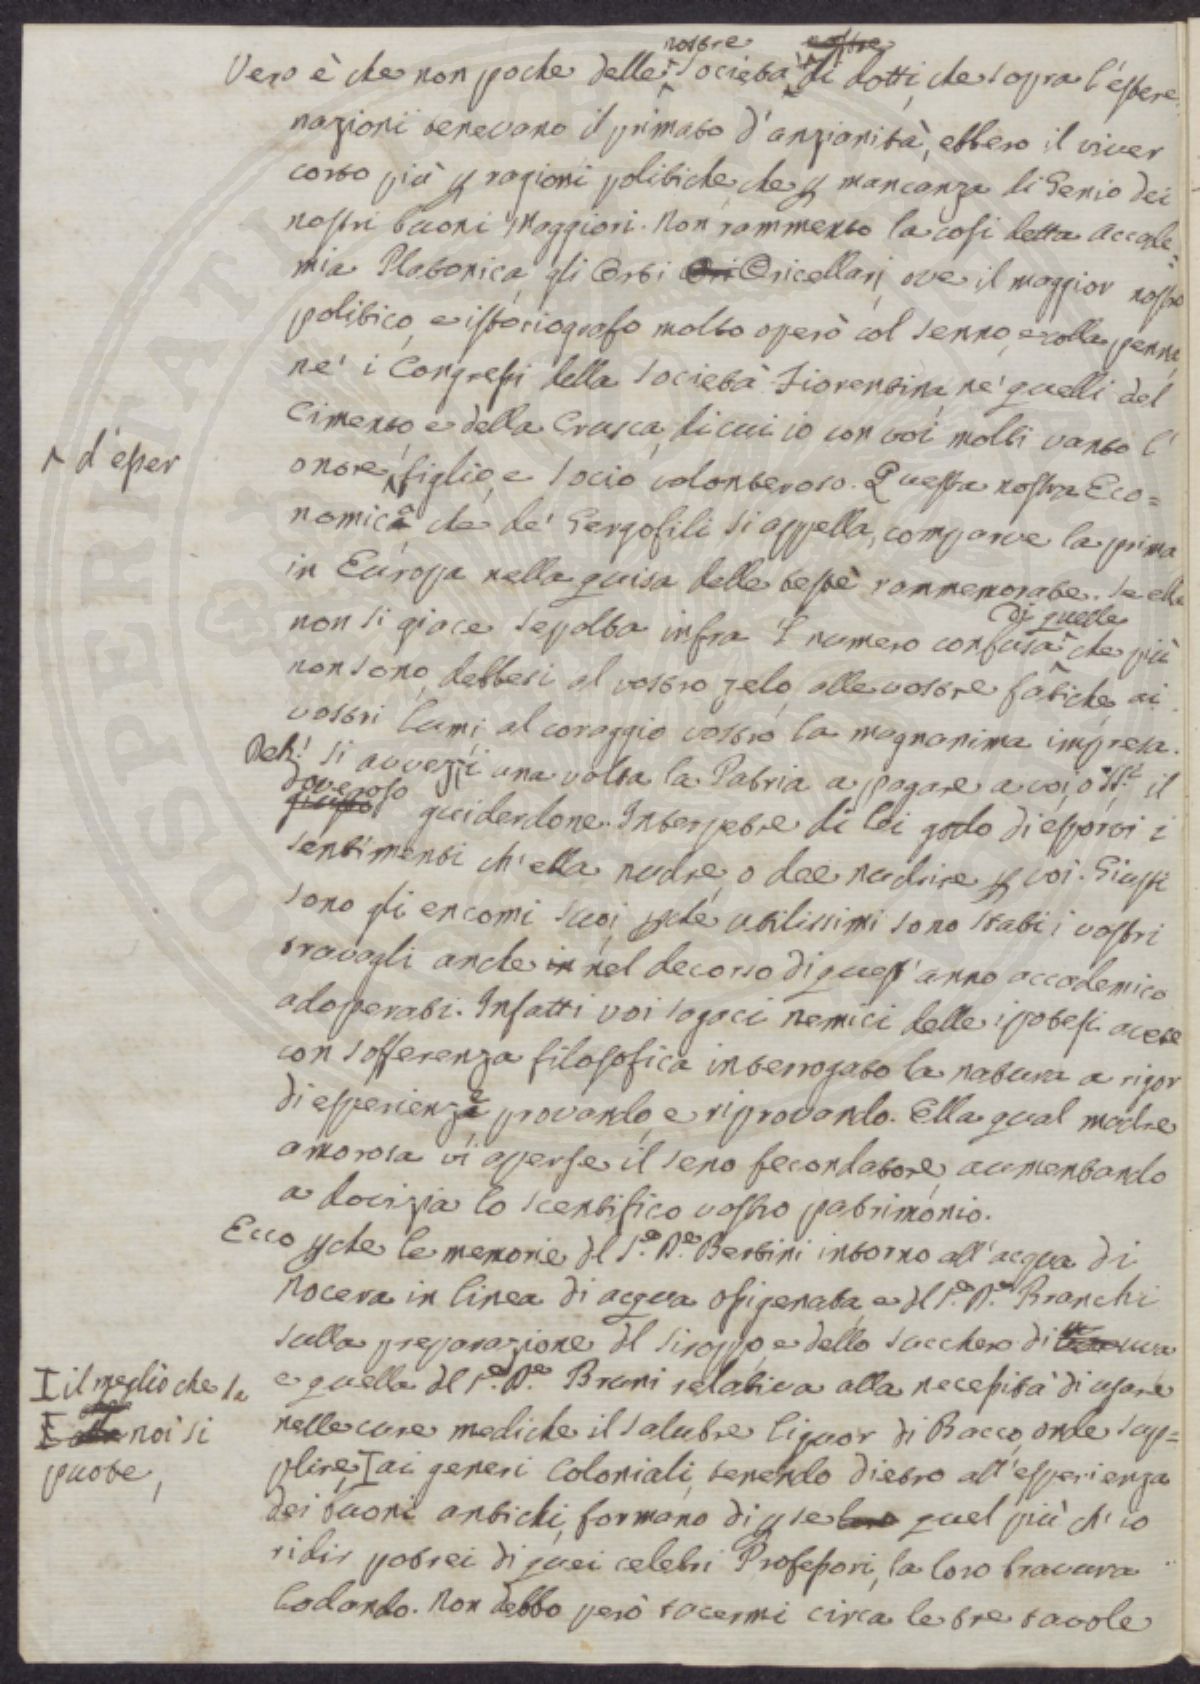 nostre nostre
Vero è che non poche delle ^ società ^ di dotti, che sopra l'estere
nazioni tenevano il primato d'anzianità, ebbero il viver
corto più p ragioni politiche, che p mancanza di Genio dei
nostri buoni Maggiori. Non rammento la così detta Accade=
mia Platonica, gli Orti Ori Oricellarj, ove il maggior nostro
politico, e istoriografo molto operò col senno, e colla penna,
ne' i Congressi della Società Fiorentina, ne' quelli del
Cimento, e della Crusca, di cui io con voi molti vanto l'
^ d'esser
onore ^ figlio, e socio volonteroso. Questa nostra Eco=
nomica, che de' Gergofili si appella, comparve la prima
in Europa nella guisa delle testè rammemorate. Se ella
di quelle
non si giace sepolta infra 'l numero confusa ^ che più
non sono, debbesi al vostro zelo, alle vostre fatiche, ai
vostri lumi, al coraggio vostro la magnanima impresa.
Deh! si avvezzi una volta la Patria a pagare a voi, o SS.ri il
doveroso
giusto guiderdone. Interpetre di lei godo di esporvi i
sentimenti ch'ella nudre, o dee nudrire p voi. Giusti
sono gli encomi suoi, pchè utilissimi sono stati i vostri
travagli anche in nel decorso di quest'anno accademico
adoperati. Infatti voi sagaci nemici delle ipotesi avete
con sofferenza filosofica interrogato la natura a rigor
di esperienza, provando, e riprovando. Ella qual madre
amorosa vi aperse il seno fecondatore, aumentando
a dovizia lo scentifico vostro patrimonio.
Ecco pche le memorie dl S.e D.e Bertini intorno all'acqua di
Nocera in linea di acqua ossigenata, e dl S.e D.e Branchi
sulla preparazione dl siroppo, e dello succhero di uva
e quella dl S.e D.e Bruni relativa alla necessità di usare
I il meglio che da
noi si
puote,
nelle cure mediche il salubre liquor di Bacco, onde sup=
plire I ai generi Coloniali, tenendo dietro all'esperienza
dei buoni antichi, formano di p se loro quel più ch'io
ridir potrei di quei celebri Professori, la loro bravura
lodando. Non debbo però tacermi circa le tre tavole